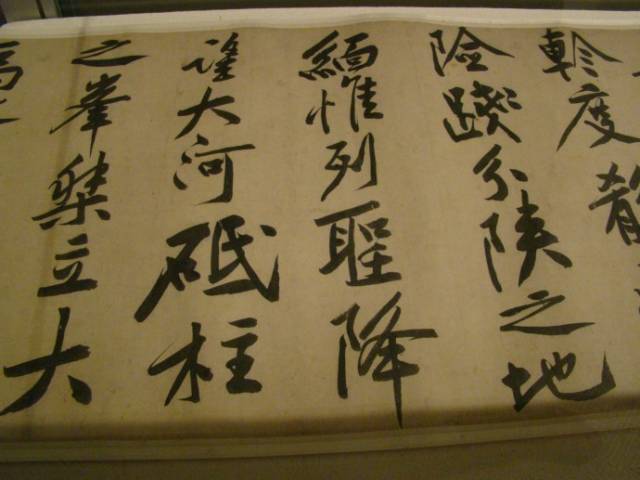 軫度殽
險踐分陝之地
緬惟列聖降
望大河砥柱
之峯桀立大
禹之